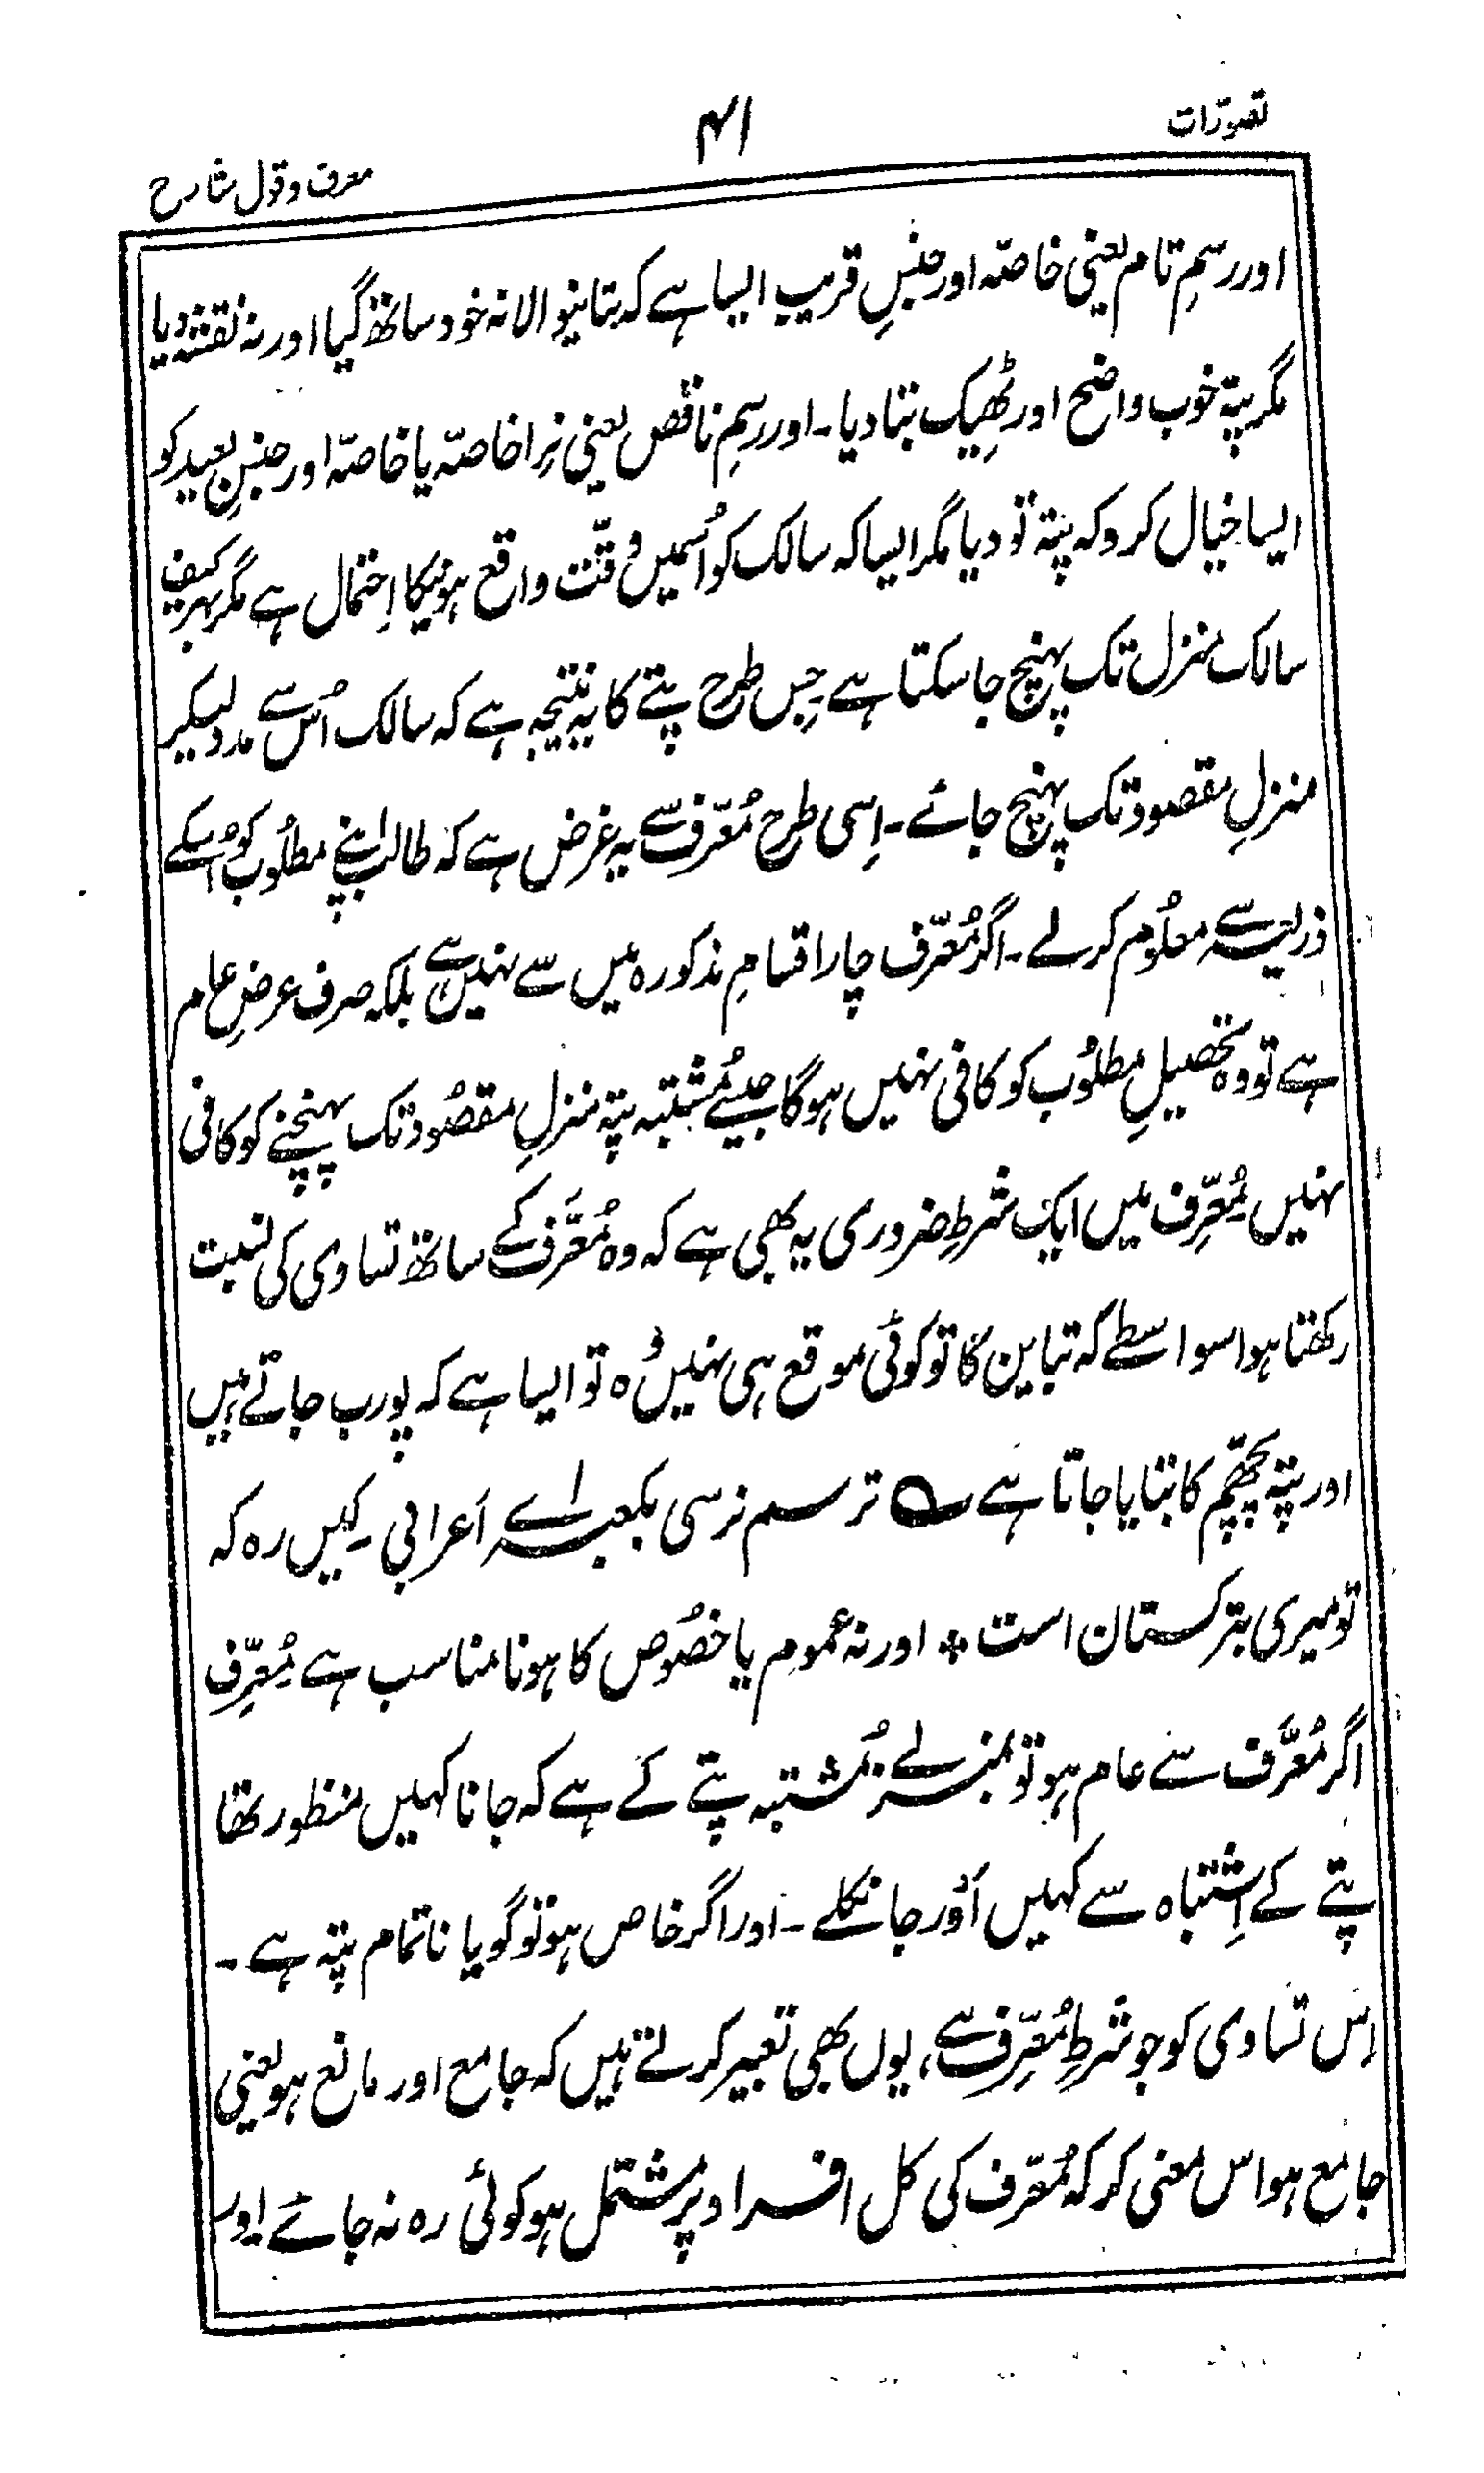 تصورات
۴۱
معرف وقول شارح
اور رسمِ تام یعنی خاصّہ اور جنسِ قریب ایسا ہے کہ بتانیوالا نہ خود ساتھ گیا اور نہ نقشہ دیا
مگر پتہ خوب واضح اور ٹھِیک بتا دیا۔ اور رسمِ ناقص یعنی نِرا خاصّہ یا خاصّہ اور جنسِ بعید کو
ایسا خیال کرو کہ پتہ تو دیا مگر ایسا کہ سالک کو اُسمیں دِقّت واقع ہونیکا اِحتمال ہے مگر بہرکیف
سالک منزل تک پہنچ جا سکتا ہے۔ جِس طرح پتے کا یہ نتیجہ ہے کہ سالک اُس سے مدد لیکر
منزلِ مقصود تک پہنچ جائے۔ اِسی طرح مُعَرِّف سے یہ غرض ہے کہ طالب اپنے مطلُوب کو اُسکے
ذریعہ سے معلُوم کر لے۔ اگر مُعَرِّف چار اقسامِ مذکورہ میں سے نہیں ہے بلکہ صرف عرضِ عام
ہے تو وہ تحصیلِ مطلُوب کو کافی نہیں ہوگا جیسے مُشتبہ پتہ منزلِ مقصُود تک پہنچنے کو کافی
نہیں۔ مُعَرِّف میں ایک شرطِ ضروری یہ بھی ہے کہ وہ مُعَرَّف کے ساتھ تساوی کی نسبت
رکھتا ہو اسواسطے کہ تباین کا تو کوئی موقع ہی نہیں وُہ تو ایسا ہے کہ پورب جاتے ہیں
اور پتہ پچھّم کا بتایا جاتا ہے ؎ ترسم نرسی بکعبہ اے اَعرابی۔ کیں رہ کہ
تو میری بترکستان است ٭ اور نہ عموم یا خصُوص کا ہونا مناسب ہے۔ مُعَرِّف
اگر مُعَرَّف سے عام ہو تو بمنزلے مُشتبہ پتے کے ہے کہ جانا کہیں منظور تھا
پتے کے اِشتباہ سے کہیں اَوْر جا نکلے۔ اور اگر خاص ہو تو گویا ناتمام پتہ ہے۔
اِس تساوی کو جو شرطِ مُعَرِّف ہے، یوں بھی تعبیر کرتے ہیں کہ جامع اور مانع ہو یعنی
جامع ہو اس معنی کر کہ مُعَرّف کی کل افراد پر مشتمل ہو کوئی رہ نہ جائے اور